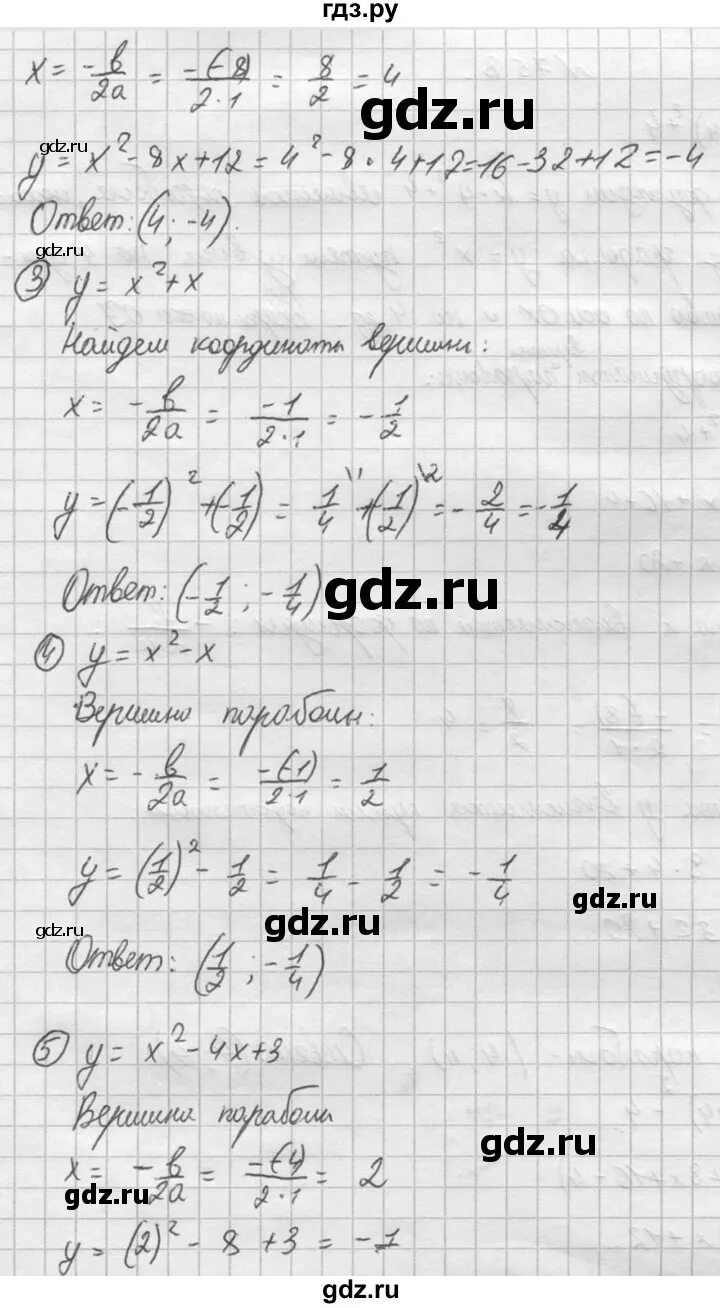 гдз.ру
x = -в/2a = -(-8)/2·1 = 8/2 = 4
gdz.ru
gdz.ru
y = x² - 8x + 12 = 4² - 8·4 + 12 = 16 - 32 + 12 = -4
Ответ: (4; -4).
gdz.ru
③ y = x² + x
Найдем координаты вершины:
x = -в/2a = -1/2·1 = -1/2
y = (-1/2)² + (-1/2) = 1/4\1 + (-1/2)\2 = -2/4 = -1/4
Ответ: (-1/2; -1/4)
gdz.ru
④ y = x² - x
Вершина параболы:
x = -в/2a = -(-1)/2·1 = 1/2
y = (1/2)² - 1/2 = 1/4 - 1/2 = -1/4
gdz.ru
gdz.ru
gdz.ru
Ответ: (1/2; -1/4)
⑤ y = x² - 4x + 3
Вершина параболы
gdz.ru
x = -в/2a = -(-4)/2·1 = 2
gdz.ru
y = (2)² - 8 + 3 = -1
gdz.ru